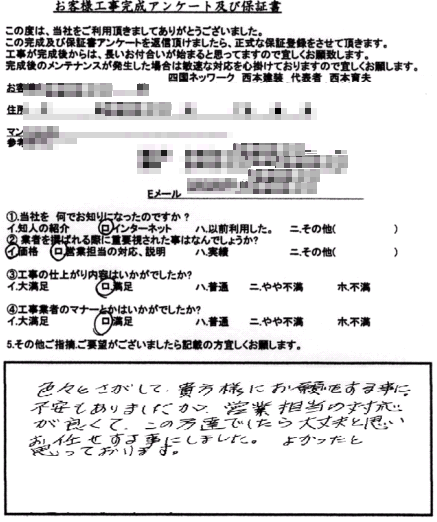 お客様工事完成アンケート及び保証書
この度は、当社をご利用頂きましてありがとうございました。
この完成及び保証書アンケートを返信頂けましたら、正式な保証登録をさせて頂きます。
工事が完成後からは、長いお付合いが始まると思ってますので宜しくお願致します。
完成後のメンテナンスが発生した場合は敏速な対応を心掛けておりますので宜しくお願します。
四国ネックワーク 西本建装 代表者 西本育夫
お客
住所
マン
参考
Eメール
①.当社を 何でお知りになったのですか?
イ.知人の紹介 ロ.インターネット ハ.以前利用した。 ニ.その他( )
② 業者を選ばれる際に重要視された事はなんでしょうか?
イ.価格 ロ.営業担当の対応、説明 ハ.実績 ニ.その他( )
③工事の仕上がり内容はいかがでしたか?
イ.大満足 ロ.満足 ハ.普通 ニ.やや不満 ホ.不満
④工事業者のマナーとかはいかがでしたか?
イ.大満足 ロ.満足 ハ.普通 ニ.やや不満 ホ.不満
5.その他ご指摘.ご要望がございましたら記載の方宜しくお願します。
色々とさがして、貴方様にお願をする事に
不安もありましたが、営業担当の対応
が良くて、この方達でしたら大丈夫と思い
お任せする事にしました。 よかったと
思っております。